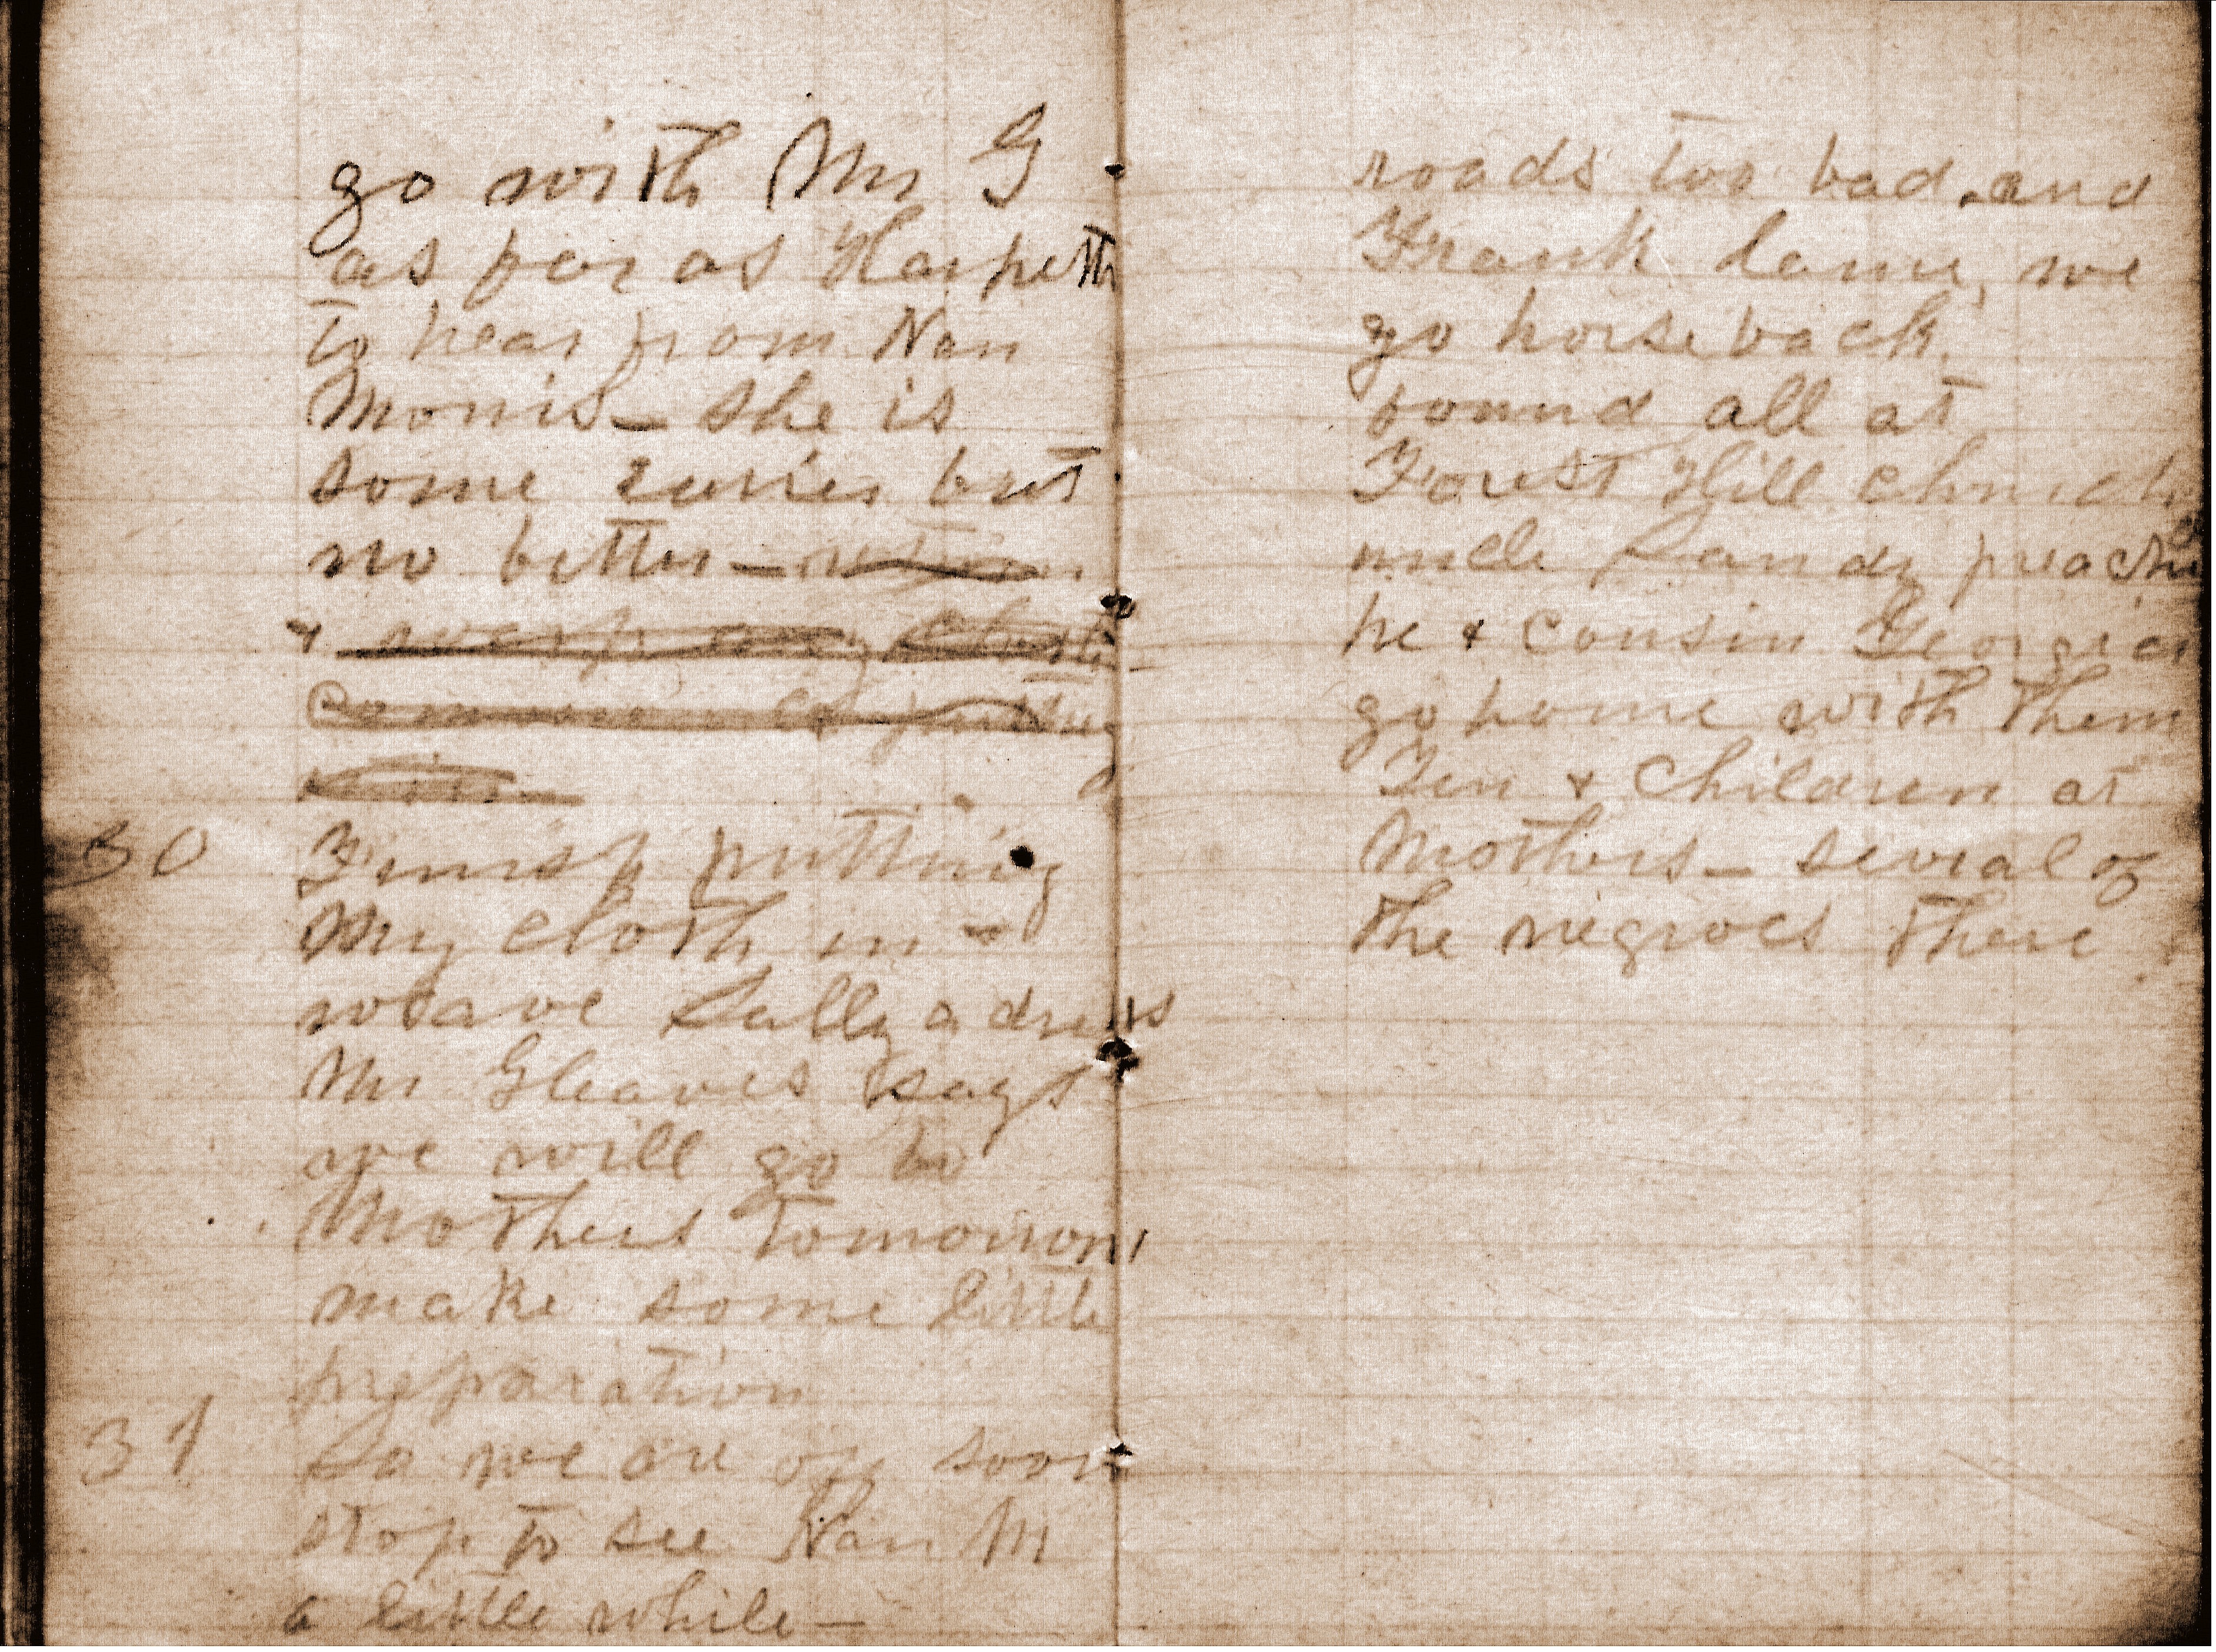 go with Mr G
as far as Harpeth
to hear from Nan
Morris - she is
some easier but
no better -
+
30 Finish putting
My cloth in -
weave Sally a dress
Mr Gleaves says
we will go to
Mothers tomorrow
make some little
preparation
31 So we are off soon
stop to see Nan M
a little while -
roads too bad. and
Frank lame, we
go horseback.
found all at
Forest Hill church
uncle Sandy preached
he + cousin Georgia
go home with them
+ children at
Mothers - several of
the negroes there